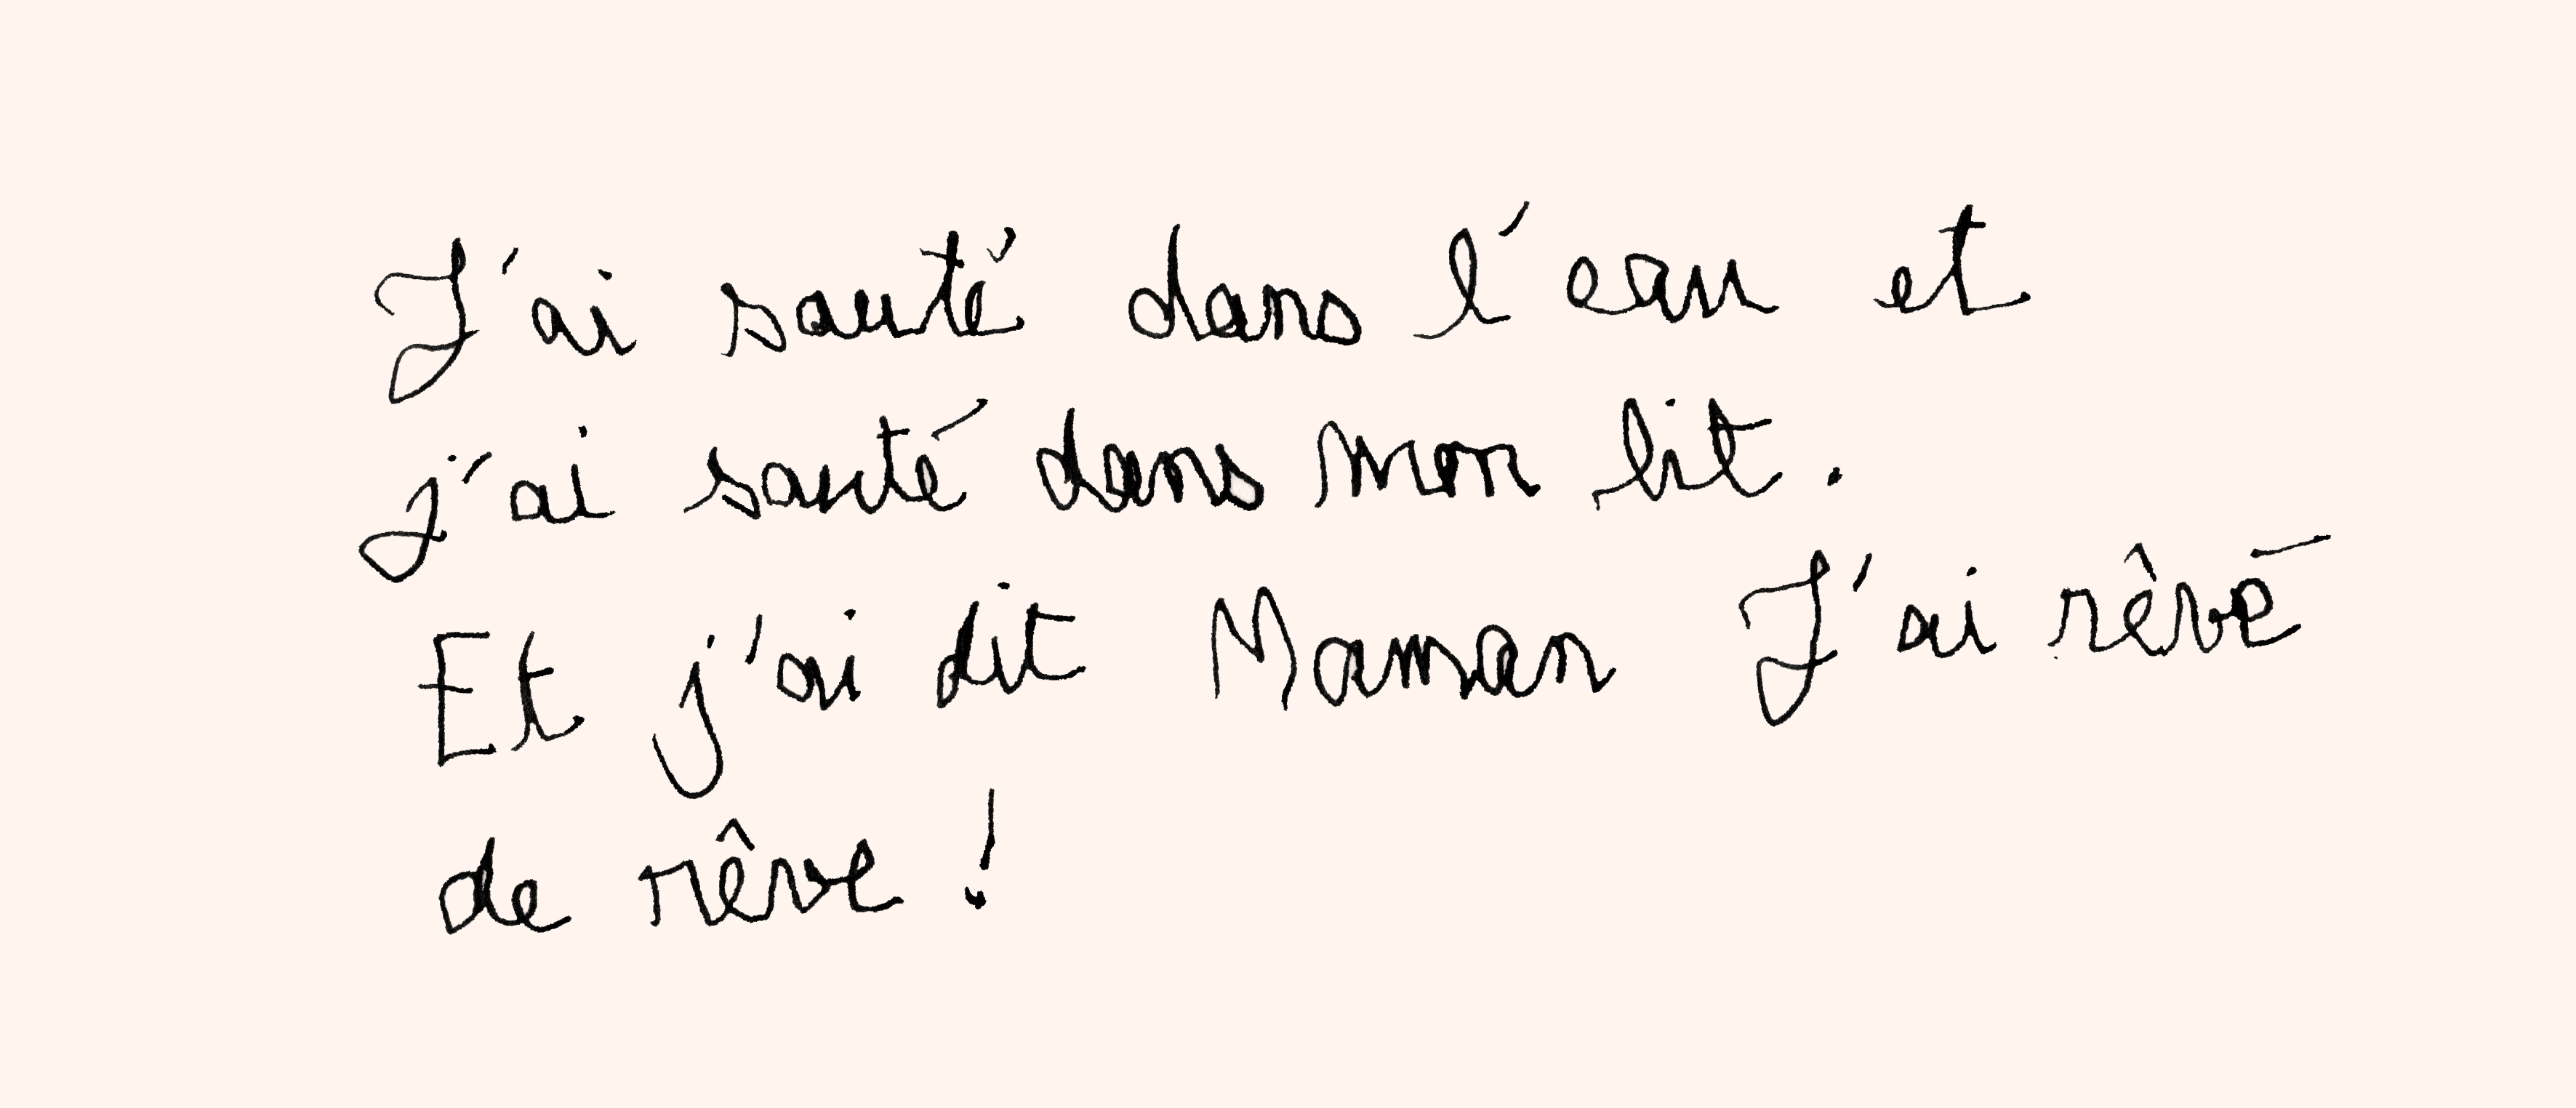 J'ai sauté dans l'eau et
j'ai sauté dans mon lit.
Et j'ai dit Maman J'ai rêvé
de rêve !